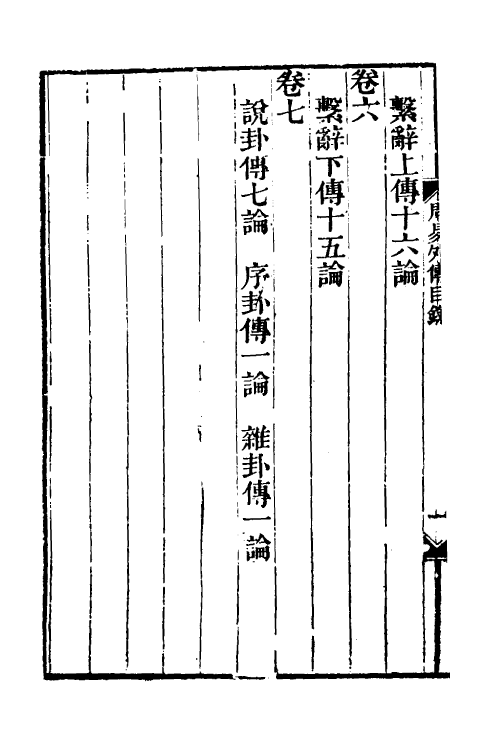 繫辭上傳十六論
卷六
繫辭下傳十五論
卷七
說卦傳七論　序卦傳一論　雜卦傳一論
周易外傳目錄